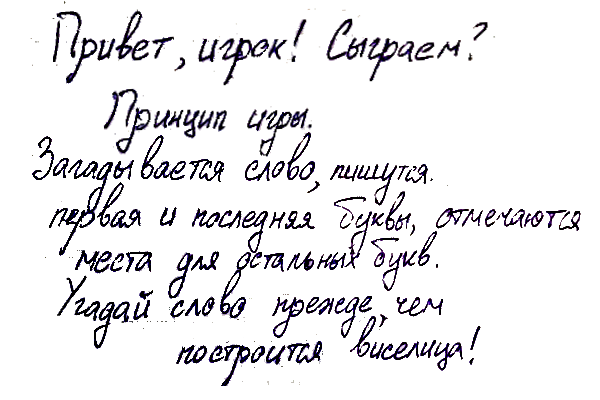 Привет, игрок! Сыграем?
Принцип игры.
Загадывается слово, пишутся.
первая и последняя буквы, отмечаются
места для остальных букв.
Угадай слово прежде, чем
построится виселица!